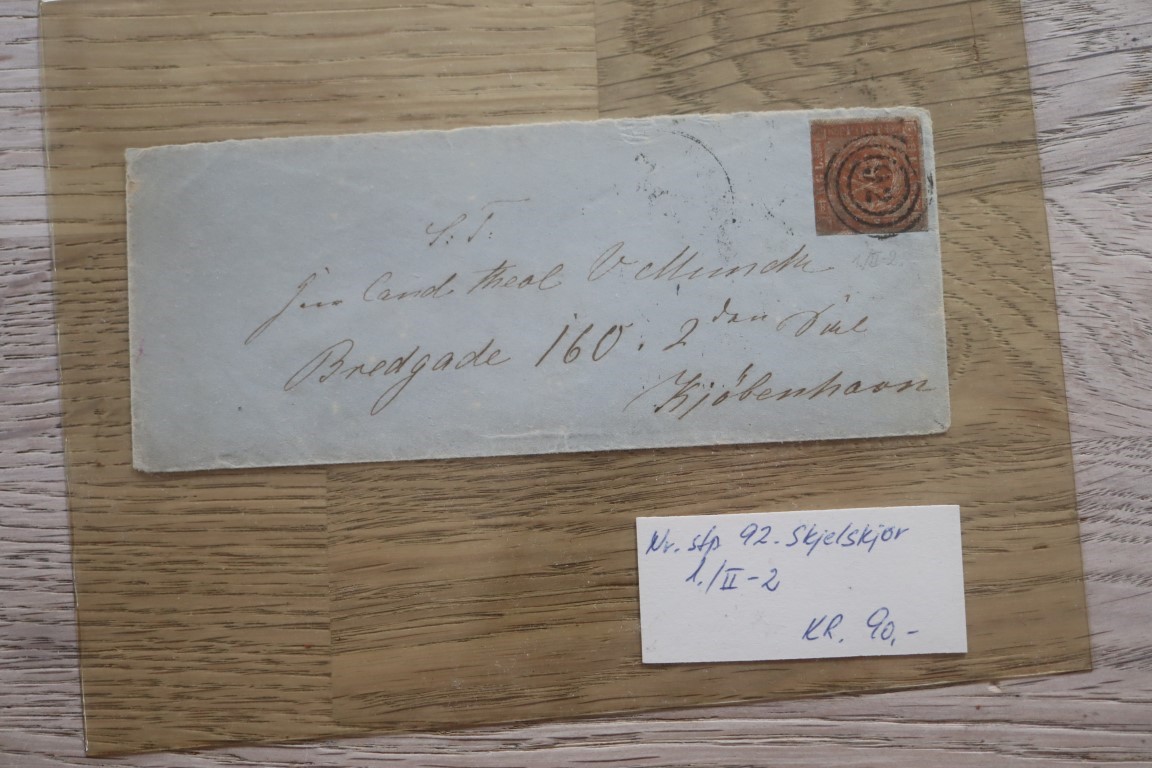 S. T.
Cand. theol V. Munck
Bredgade 160. 2den Sal
Kjöbenhavn
1/II-2.
Nr. stp 92. Skjelskjør
1./II-2
KR. 90,-